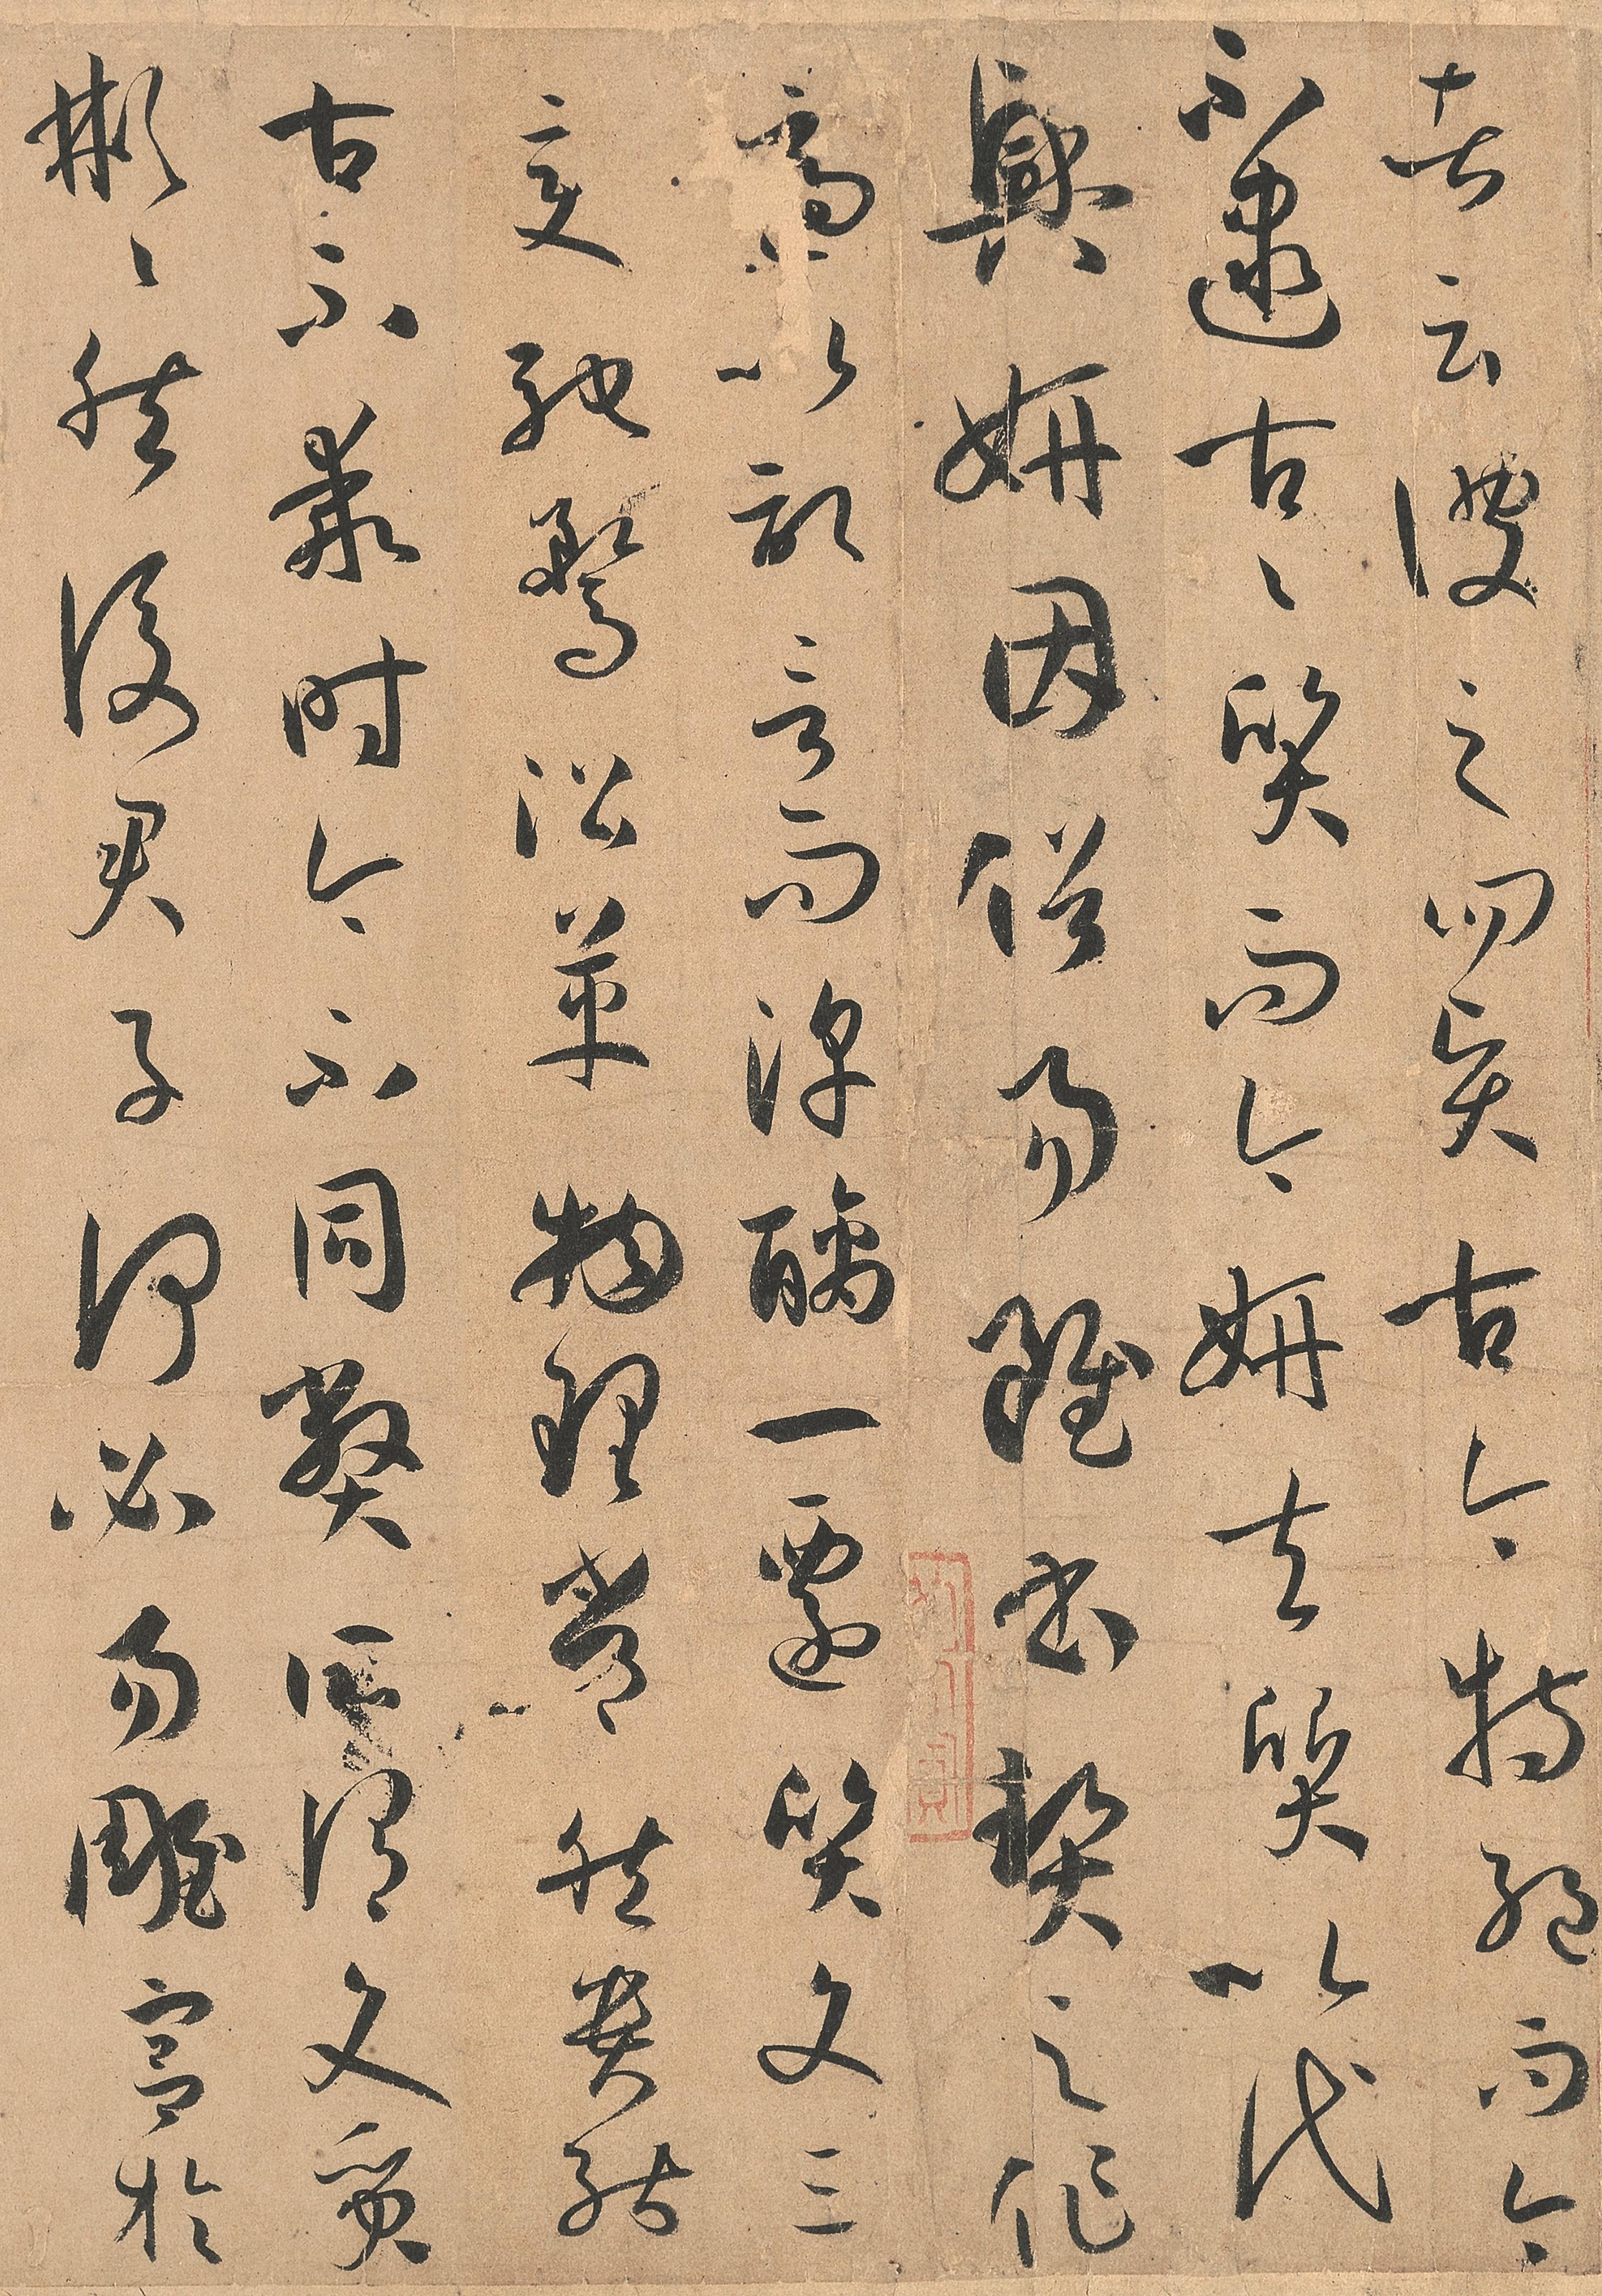 者云彼之四賢古今特絕而今
不逮古〻質而今妍夫質以代
興妍因俗易雖書契之作
適以記言而淳醨一遷質文三
變馳騖沿革物理常然貴能
古不乖時今不同弊所謂文質
彬〻然後君子何必易雕宮於